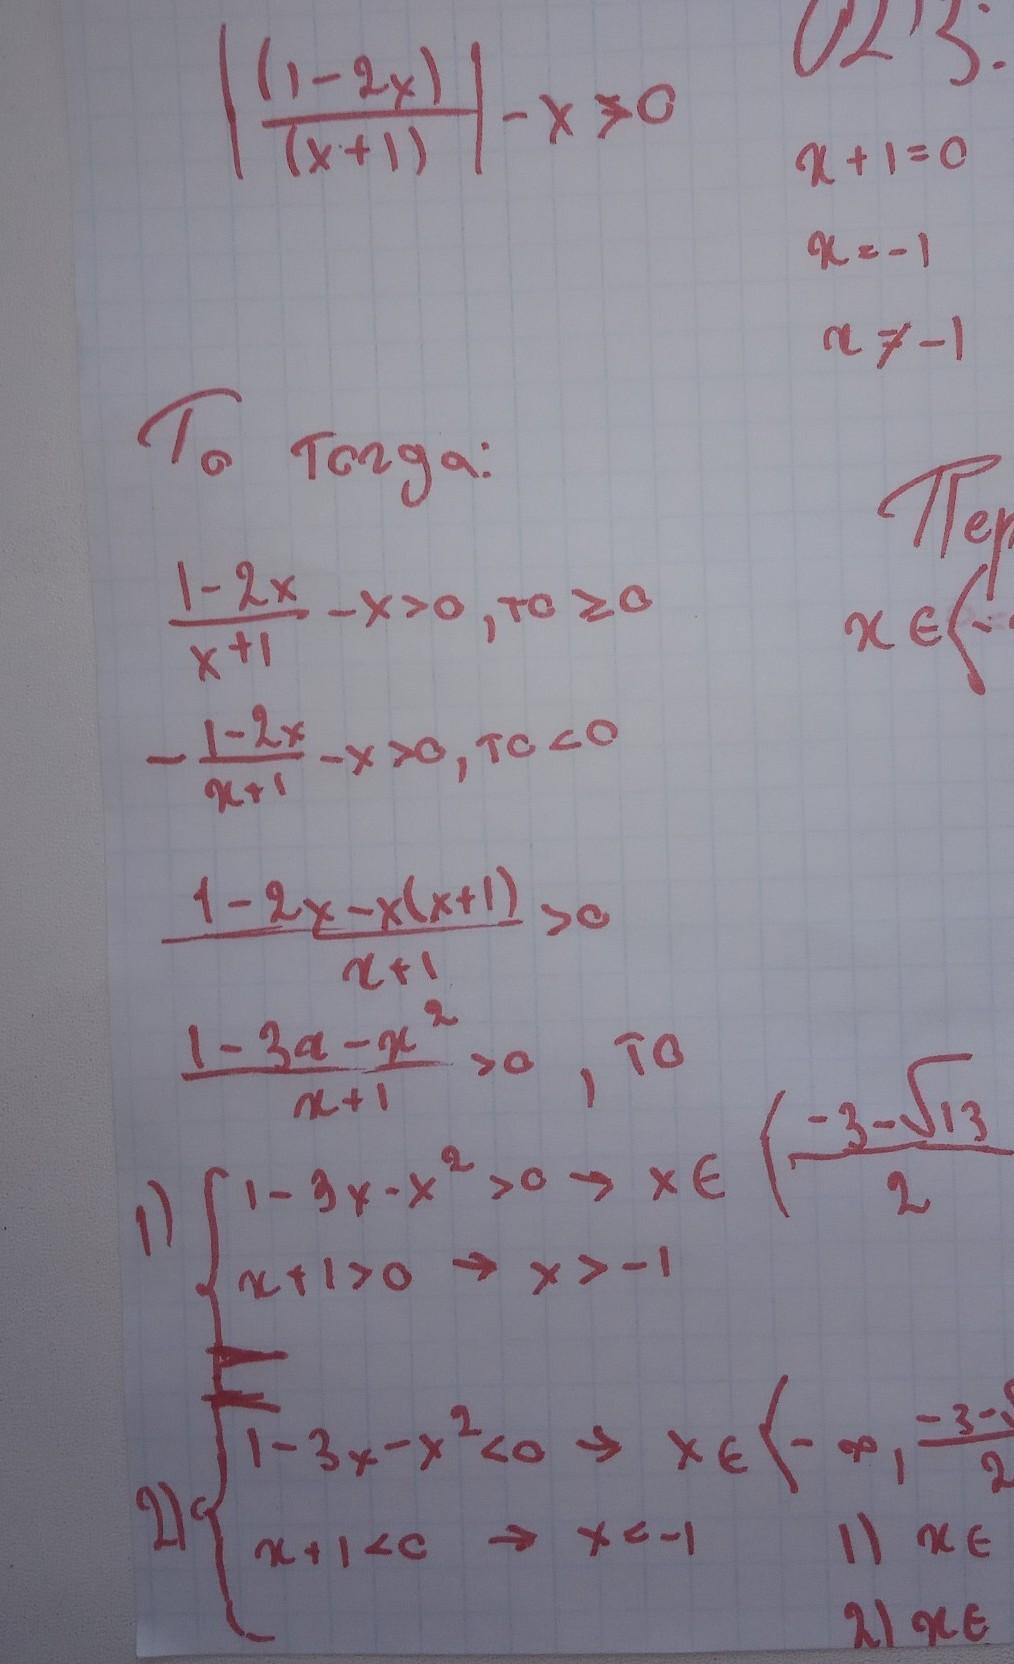 |(1-2x)/(x+1)| - x > 0
ОДЗ:
x + 1 = 0
x = -1
x ≠ -1
То тогда:
(1-2x)/(x+1) - x > 0, то ≥ 0
-(1-2x)/(x+1) - x > 0, то < 0
x ∈ (-
(1-2x-x(x+1))/(x+1) > 0
(1-3x-x²)/(x+1) > 0, то
1) { 1-3x-x² > 0 → x ∈ ((-3-√13)/2
x+1 > 0 → x > -1
2) { 1-3x-x² < 0 → x ∈ (-∞, (-3-√
2
x+1 < 0 → x < -1
1) x ∈
2) x ∈